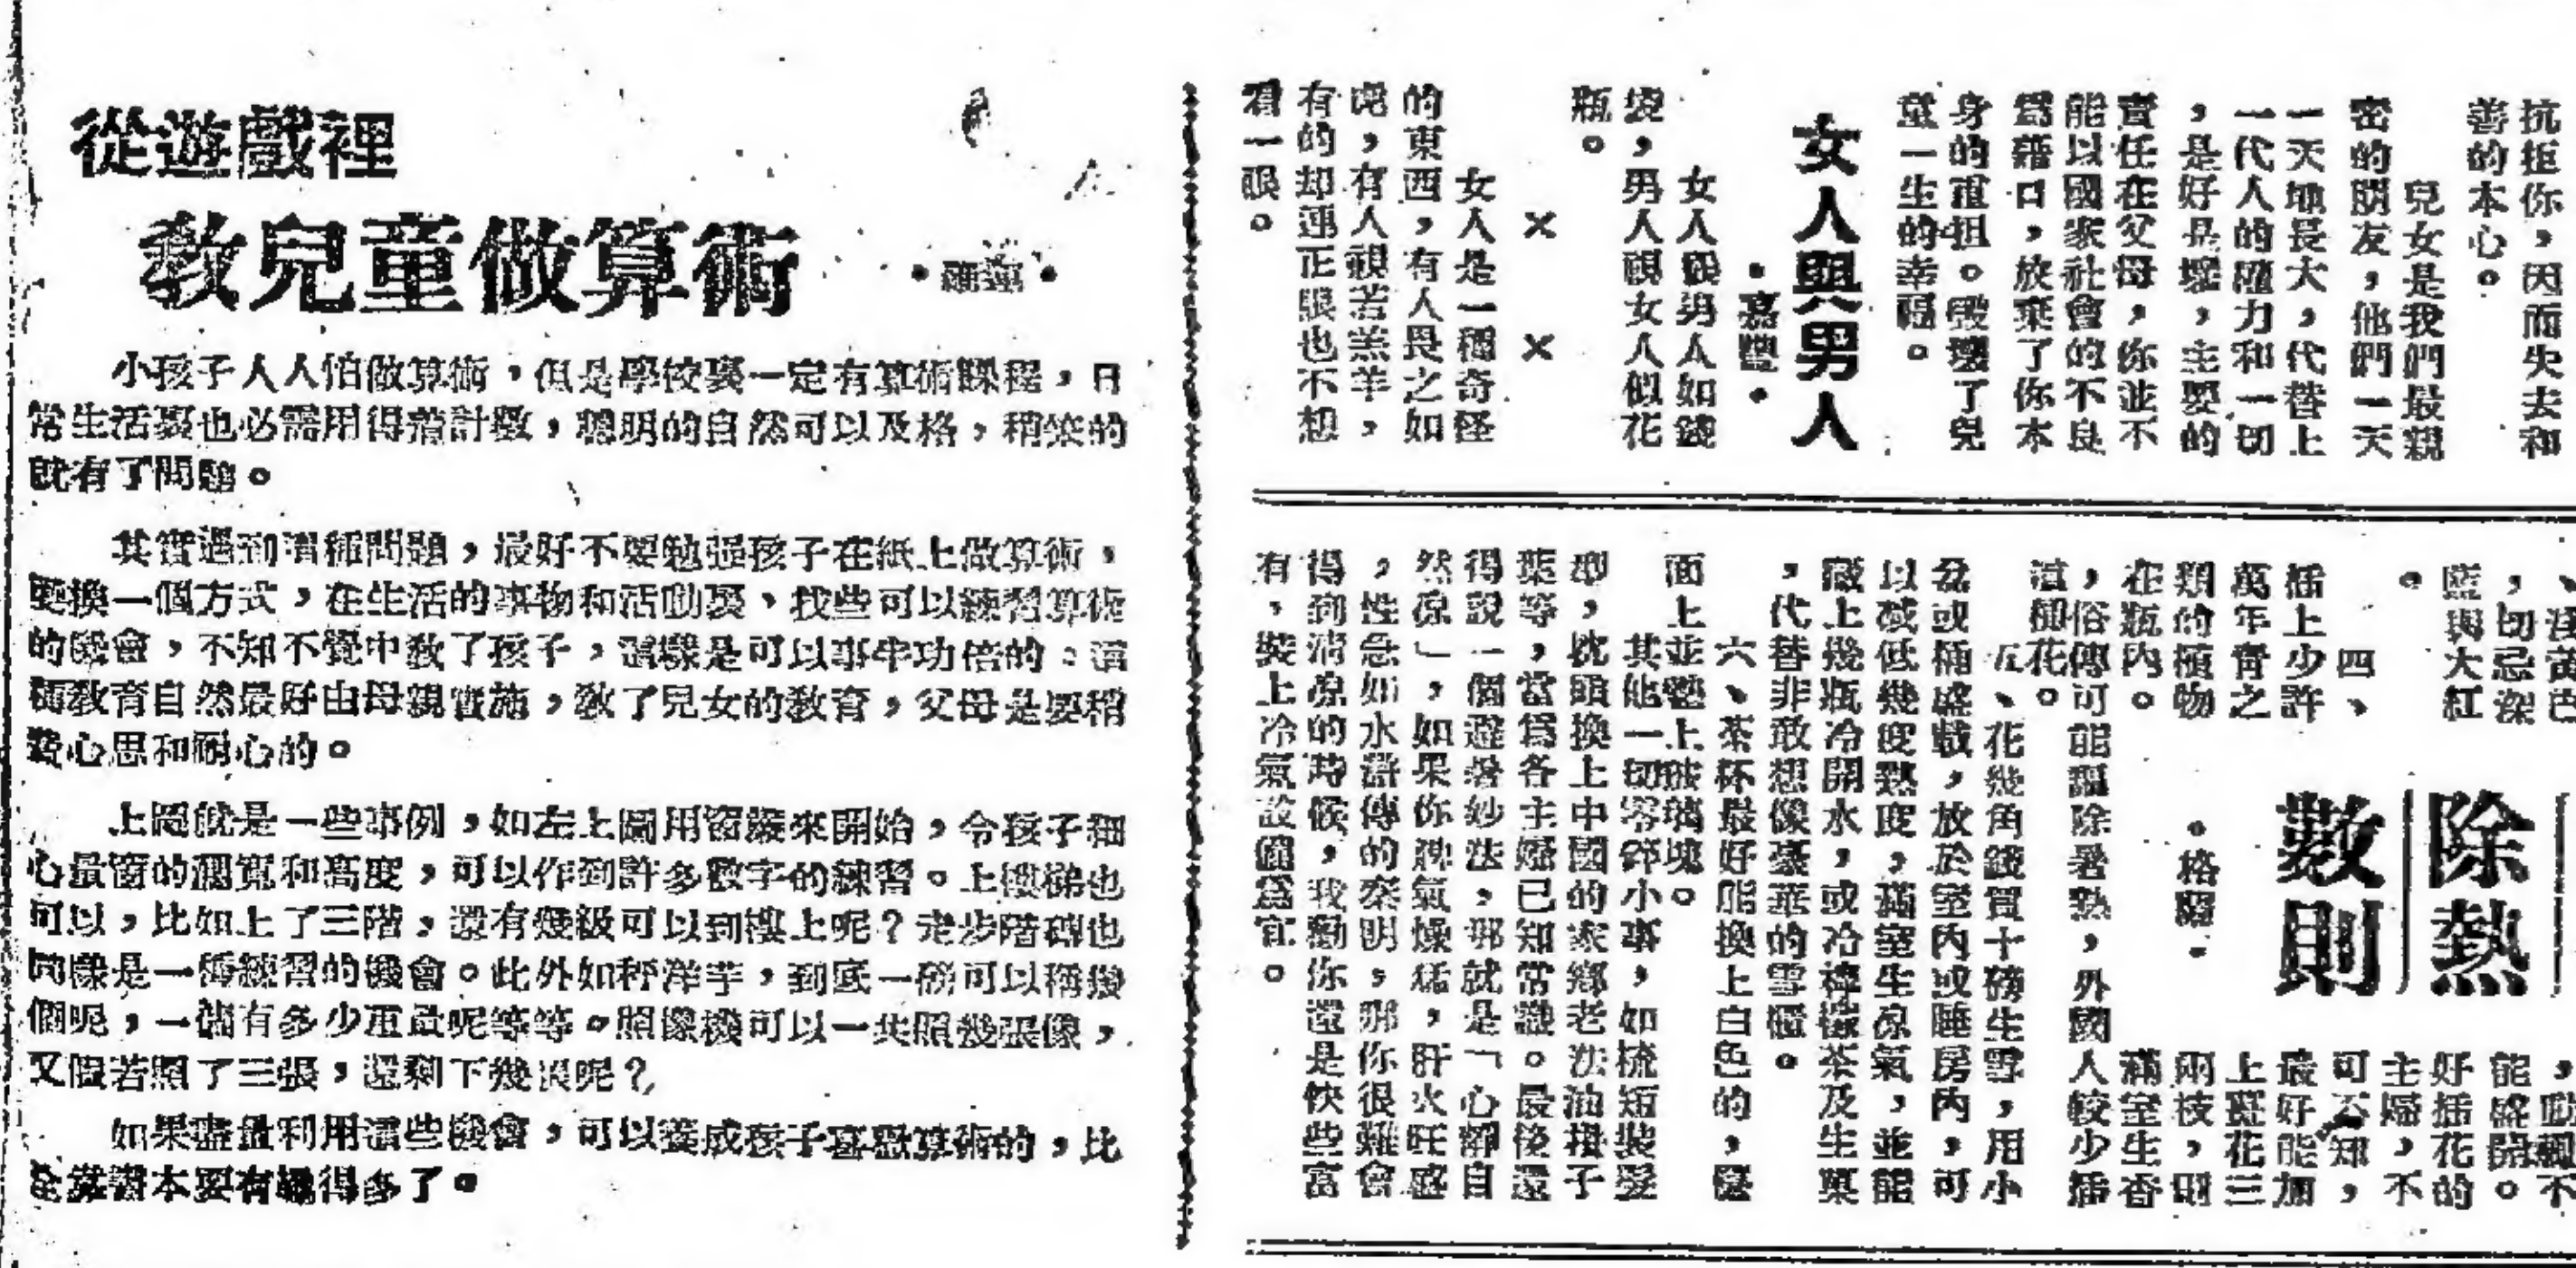 從遊戲裡
教兒童做算術
小孩子人人怕做算術，但是學校裏一定有算術課程，日
常生活裏也必需用得着計數，聰明的自然可以及格，稍笨的
就有了問題。
其實遇到這種問題，最好不要勉强孩子在紙上做算術，
要換一個方式，在生活的事物和活動裏，找些可以練習算術
的機會，不知不覺中教了孩子，這樣是可以事半功倍的。這
種教育自然最好由母親實施，教了兒女的教育，父母是要稍
費心思和耐心的。
上圖就是一些事例，如左上圖用窗簾來開始，令孩子細
心量窗的濶寬和高度，可以作到許多數字的練習。上樓梯也
可以，比如上了三階，還有幾級可以到樓上呢？走步階磚也
同樣是一種練習的機會。此外如秤洋芋，到底一磅可以稱幾
個呢，一個有多少重量呢等等。照像機可以一共照幾張像，
又假若照了三張，還剩下幾張呢？
如果盡量利用這些機會，可以養成孩子喜歡算術的，比
全靠書本要有趣得多了。
抗拒你，因而失去和
善的本心。
兒女是我們最親
密的朋友，他們一天
一天地長大，代替上
一代人的權力和一切
，是好是壞，主要的
責任在父母，你並不
能以國家社會的不良
爲藉口，放棄了你本
身的重担。毀壞了兒
童一生的幸福。
女人與男人
·嘉豐·
女人視男人如錢
袋，男人視女人似花
瓶。
× ×
女人是一種奇怪
的東西，有人畏之如
虎，有人視若羔羊，
有的却連正眼也不想
看一眼。
除熱
數則
·格羅·
，切忌深
藍與大紅
。
四、
插上少許
萬年青之
類的植物
在瓶內。
能盛開。
好插花的
主婦，不
可不知，
最好能加
上薑花三
兩枝，則
滿室生香
，俗傳可能驅除暑熱，外國人較少插
這種花。
五、花幾角錢買十磅生雪，用小
盆或桶盛載，放於室內或睡房內，可
以减低幾度熱度，滿室生凉氣，並能
藏上幾瓶冷開水，或冷檸檬茶及生菓
，代替非敢想像豪華的雪櫃。
六、茶杯最好能換上白色的，檯
面上並墊上玻璃塊。
其他一切零碎小事，如梳短裝髮
型，枕頭換上中國的家鄉老法油墩子
葉等，當爲各主婦已知常識。最後還
得說一個避暑妙法，那就是「心靜自
然凉」，如果你脾氣燥猛，肝火旺盛
，性急如水滸傳的秦明，那你很難會
得到淸凉的時候，我勸你還是快些富
有，裝上冷氣設備爲宜。